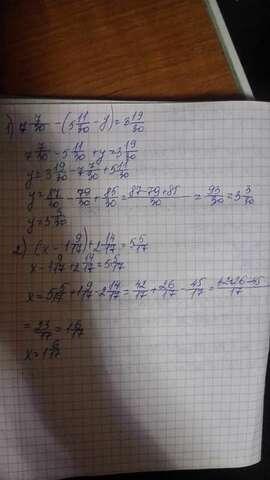 1) 7 7/30 - (5 11/30 - y) = 3 19/30
7 7/30 - 5 11/30 + y = 3 19/30
y = 3 19/30 - 7 7/30 + 5 11/30
y = 87/30 - 79/30 + 85/30 = 87-79+85/30 = 93/30 = 3 3/30
y = 3 3/30
2) (x - 1 9/17) + 2 14/17 = 5 5/17
x - 1 9/17 + 2 14/17 = 5 5/17
x = 5 5/17 + 1 9/17 - 2 14/17 = 42/17 + 26/17 - 45/17 = 42+26-45/17
= 23/17 = 1 6/17
x = 1 6/17